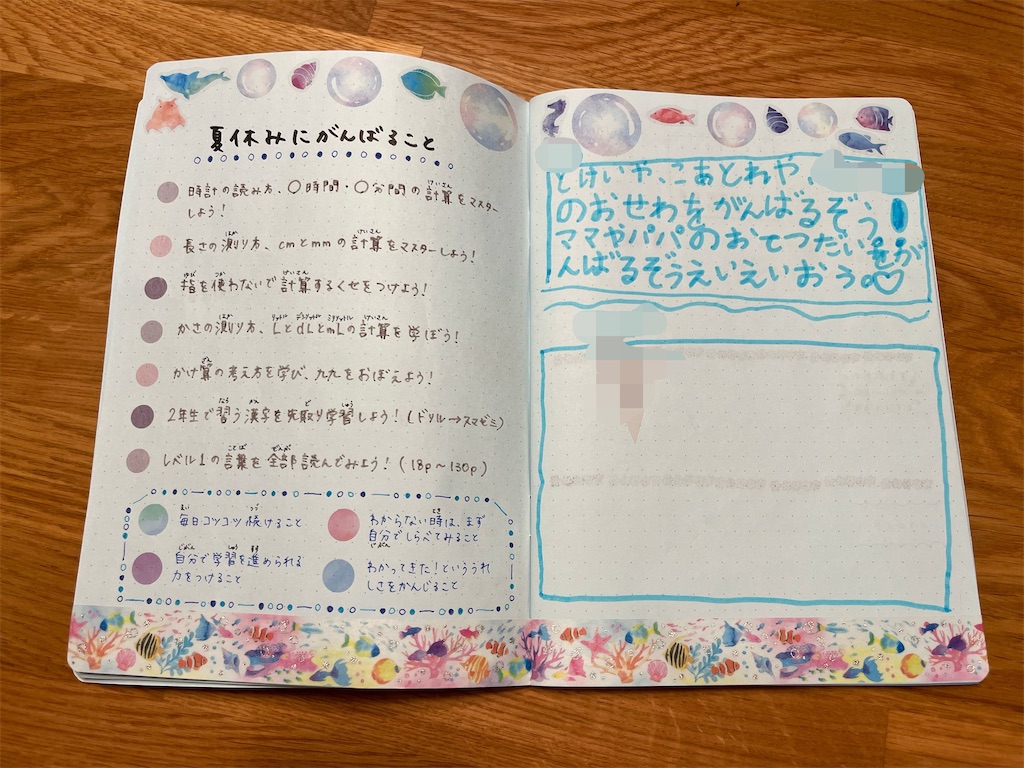 夏休みにがんばること
時計の読み方、〇時間・〇分間の計算をマスター
しよう!
長さの測り方、cmとmmの計算をマスターしよう!
指を使わないで計算するくせをつけよう!
かさの測り方、LとdLとmLの計算を学ぼう!
かけ算の考え方を学び、九九をおぼえよう!
2年生で習う漢字を先取り学習しよう!(ドリル→スマゼミ)
レベル1の言葉を全部読んでみよう!(18p〜130p)
毎日コツコツ続けること
わからない時は、まず
自分でしらべてみること
自分で学習を進められる
力をつけること
わかってきた!といううれ
しさをかんじること
とけいや、こあとれや、
のおせわをがんばるぞう!
ママやパパのおてつだいをが
んばるぞうえいえいおう。♡